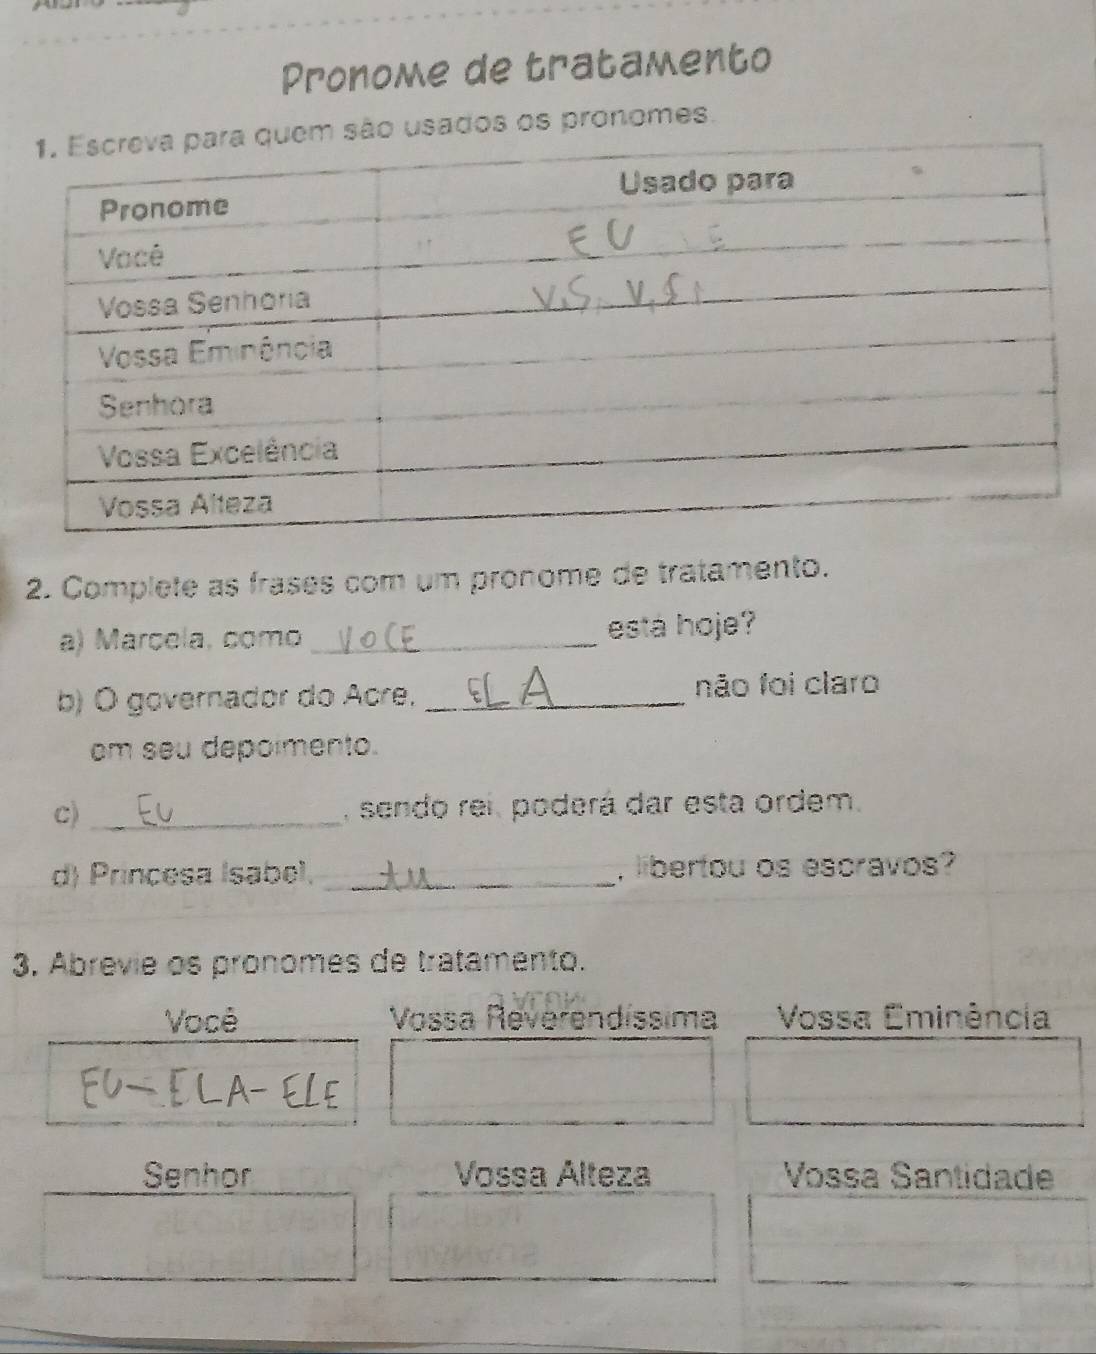 Pronome de tratamento
1. Escreva para quem são usados os pronomes.
Pronome Usado para
Você EU
Vossa Senhoria V.S. V.S.
Vossa Eminência
Senhora
Vossa Excelência
Vossa Alteza
2. Complete as frases com um pronome de tratamento.
a) Marcela, como VOCE está hoje?
b) O governador do Acre, ELA não foi claro
em seu depoimento.
c) EU, sendo rei, poderá dar esta ordem.
d) Princesa Isabel, tu, libertou os escravos?
3. Abrevie os pronomes de tratamento.
Você Vossa Reverendíssima Vossa Eminência
EU-ELA-ELE
Senhor Vossa Alteza Vossa Santidade